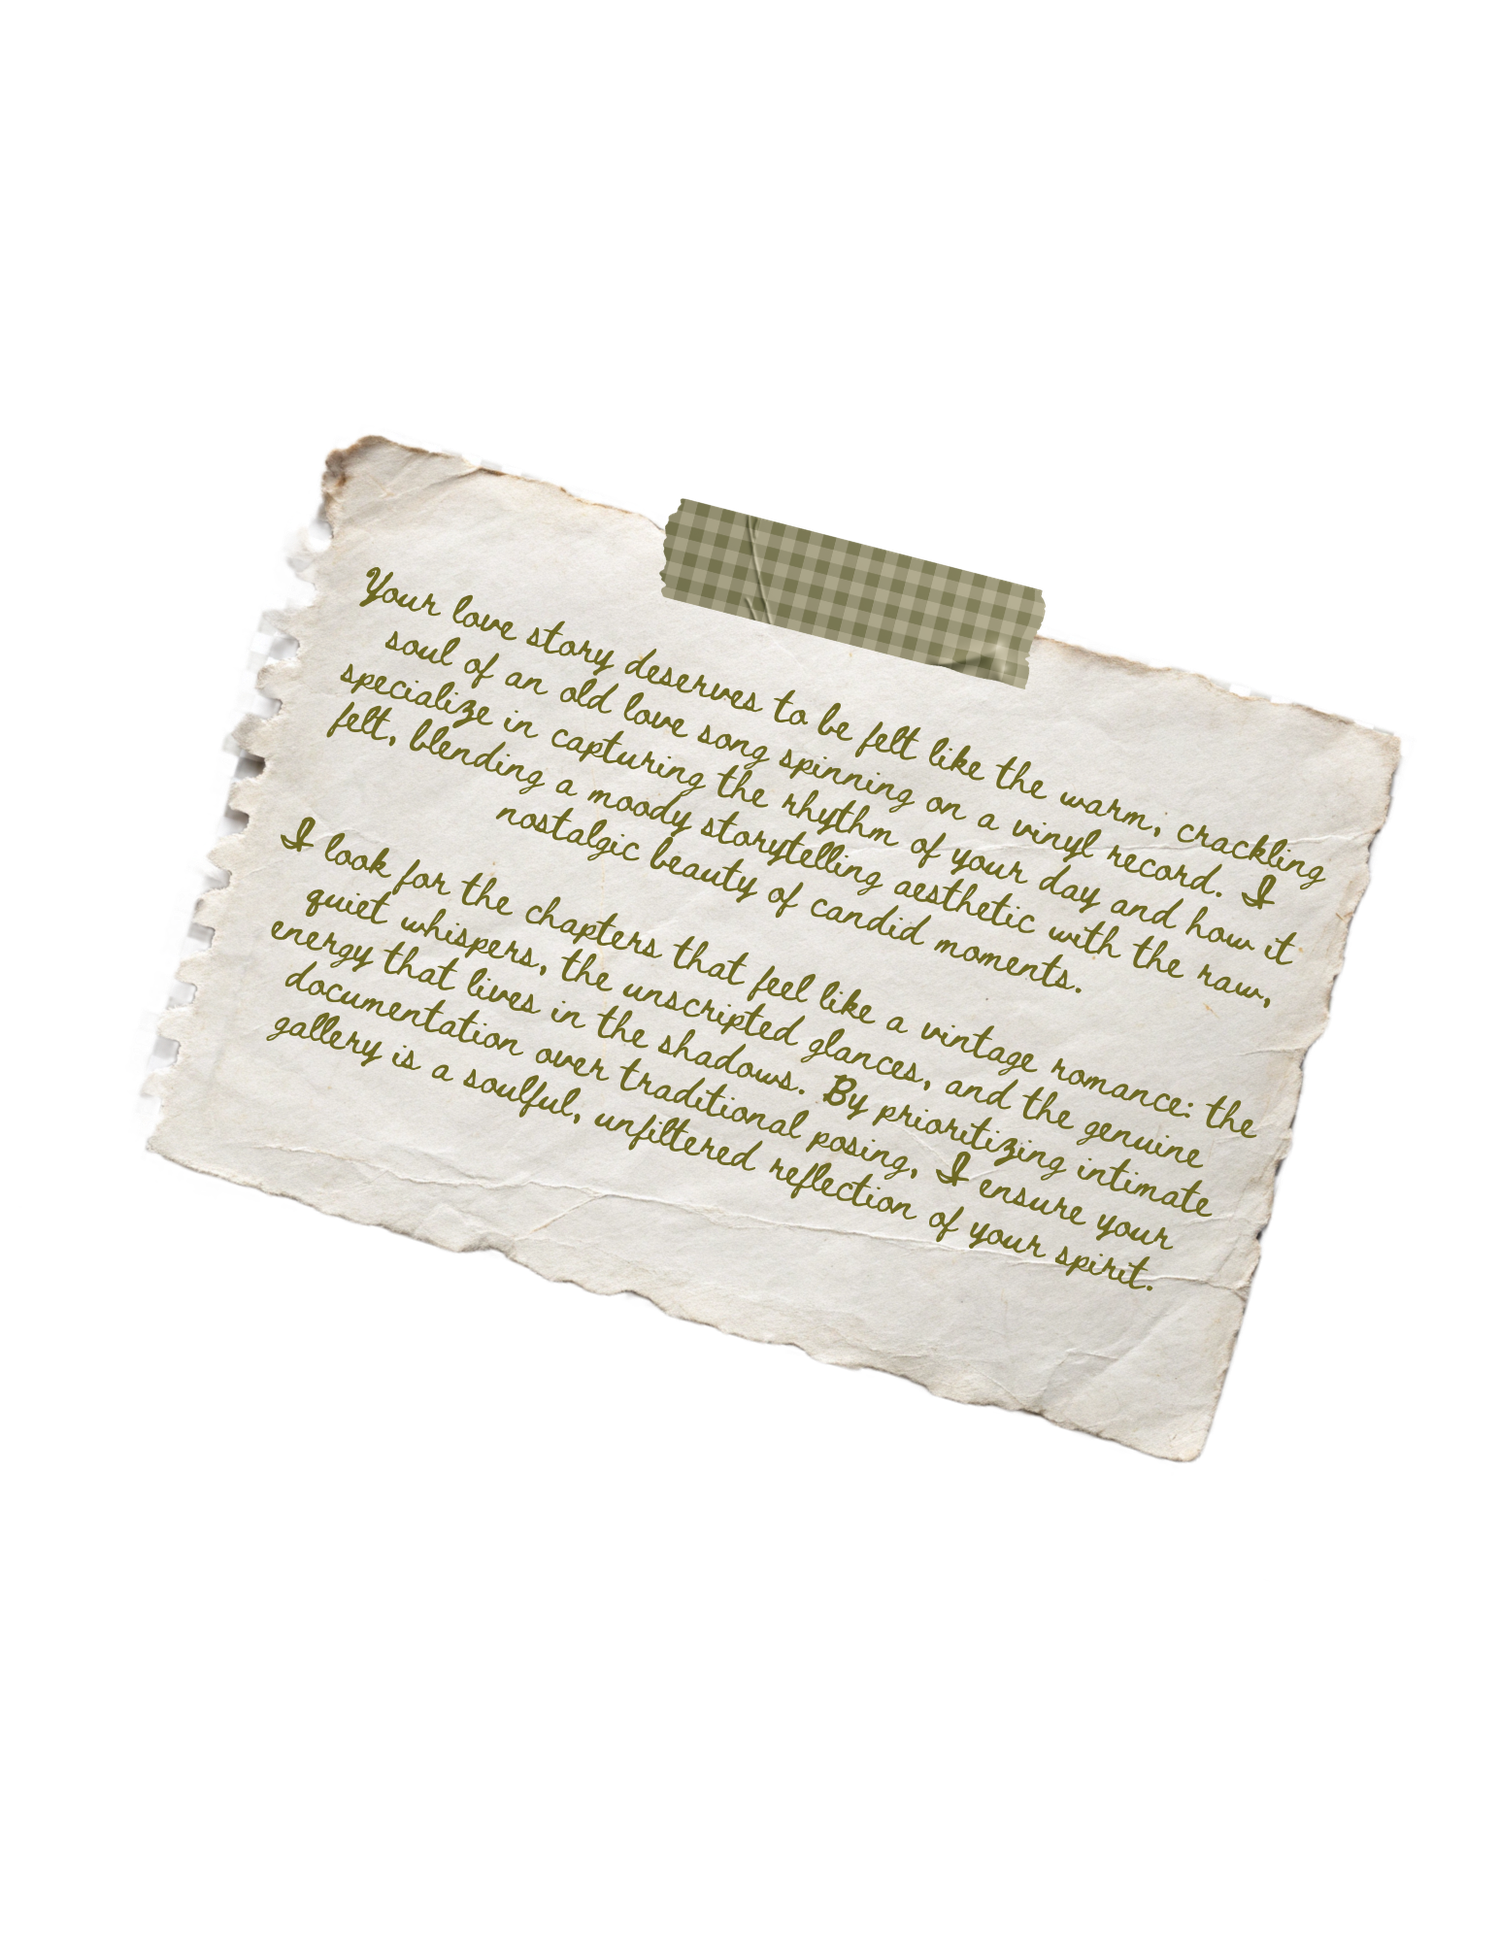 Your love story deserves to be felt like the warm, crackling
soul of an old love song spinning on a vinyl record. I
specialize in capturing the rhythm of your day and how it
felt, blending a moody storytelling aesthetic with the raw,
nostalgic beauty of candid moments.
I look for the chapters that feel like a vintage romance: the
quiet whispers, the unscripted glances, and the genuine
energy that lives in the shadows. By prioritizing intimate
documentation over traditional posing, I ensure your
gallery is a soulful, unfiltered reflection of your spirit.